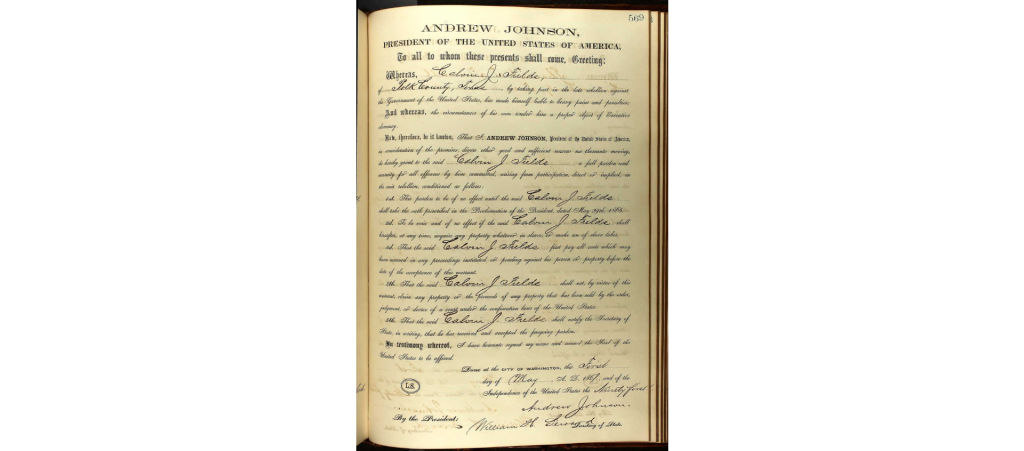 569
ANDREW JOHNSON,
PRESIDENT OF THE UNITED STATES OF AMERICA,
To all to whom these presents shall come, Greeting:
Whereas, Calvin J. Fields,
of Polk County, Texas by taking part in the late rebellion against
the Government of the United States, has made himself liable to heavy pains and penalties;
And whereas, the circumstances of his case render him a proper object of Executive
clemency;
Now, therefore, be it known, That I, ANDREW JOHNSON, President of the United States of America,
in consideration of the premises, divers other good and sufficient reasons me thereunto moving,
do hereby grant to the said Calvin J Fields a full pardon and
amnesty for all offences by him committed, arising from participation, direct or implied, in
the said rebellion, conditioned as follows:
1st. This pardon to be of no effect until the said Calvin J Fields
shall take the oath prescribed in the Proclamation of the President, dated May 29th, 1865.
2d. To be void and of no effect if the said Calvin J Fields shall
hereafter, at any time, acquire any property whatever in slaves, or make use of slave labor.
3d. That the said Calvin J Fields first pay all costs which may
have accrued in any proceedings instituted or pending against his person or property before the
date of the acceptance of this warrant.
4th. That the said Calvin J Fields shall not, by virtue of this
warrant, claim any property or the proceeds of any property that has been sold by the order,
judgment, or decree of a court under the confiscation laws of the United States.
5th. That the said Calvin J Fields shall notify the Secretary of
State, in writing, that he has received and accepted the foregoing pardon.
In testimony whereof, I have hereunto signed my name and caused the Seal of the
United States to be affixed.
Done at the CITY OF WASHINGTON, this First
day of May A. D. 1867, and of the
Independence of the United States the Ninety first
L.S.
Andrew Johnson.
By the President:
William H. Seward Secretary of State.